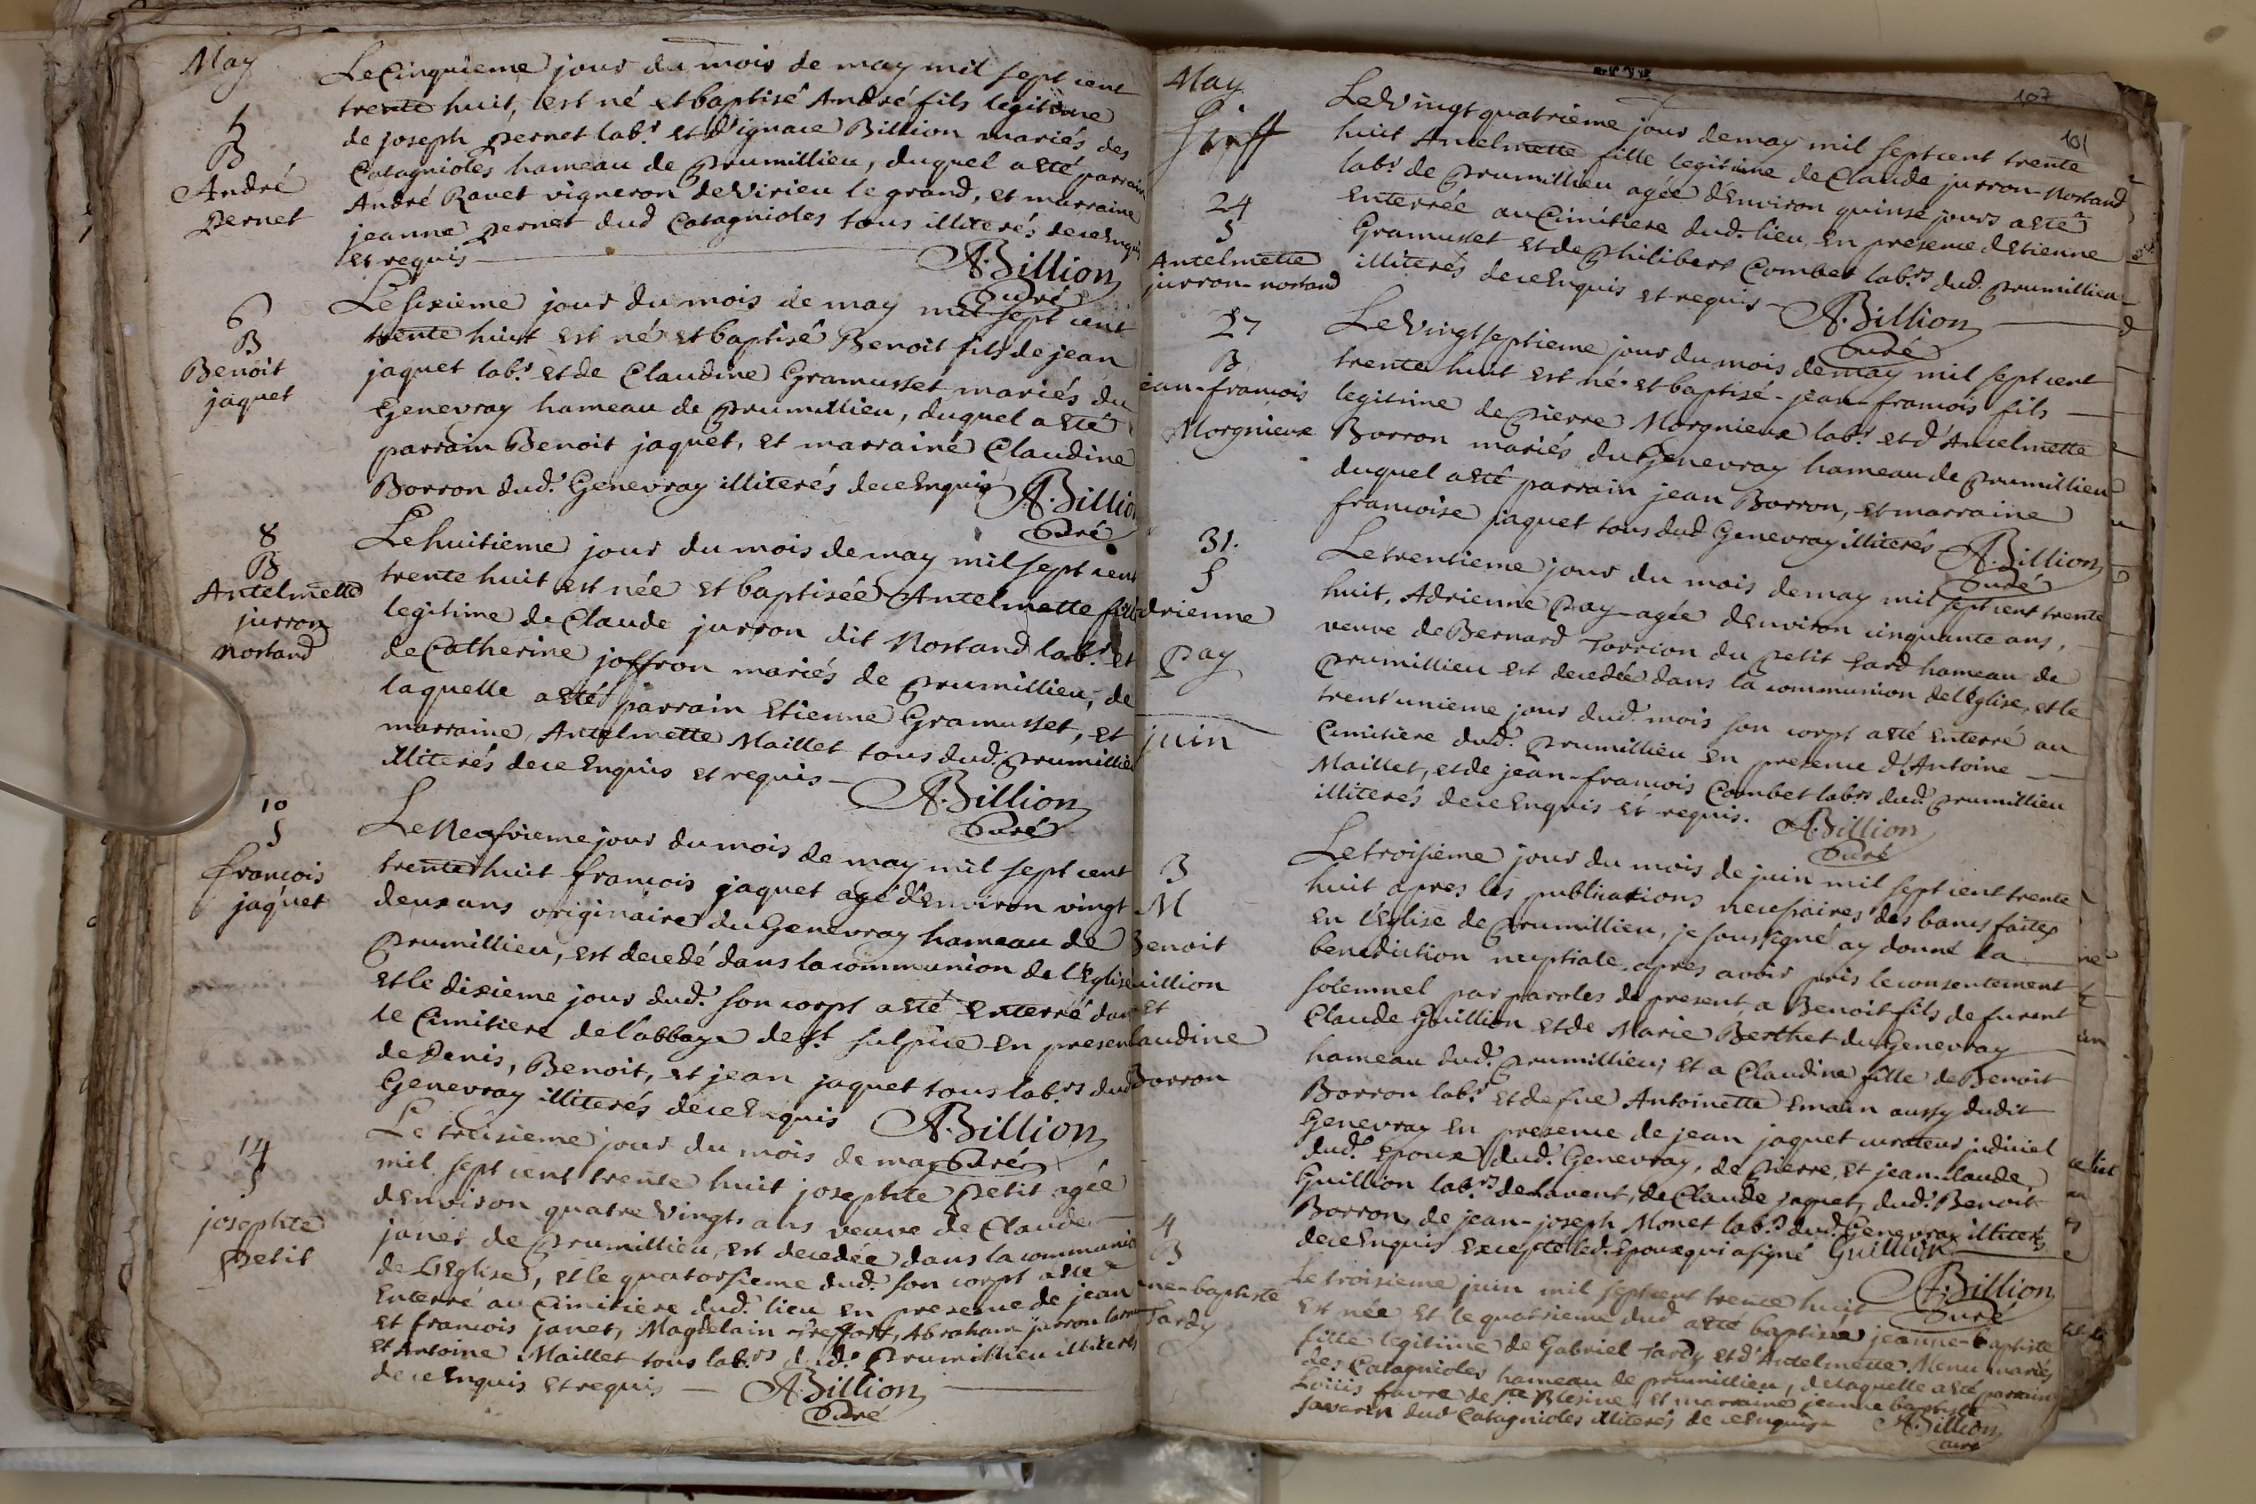 May
Le Cinquieme jour du mois de may mil sept cent
trente huit, est né et baptisé André fils legitime
de joseph pernet lab.r et d'ignace Billion mariés des
Catagnioles hameau de prumillieu, duquel a eté parrain
André Ravet vigneron de Virieu le grand, et marraine
jeanne pernet dud Catagnioles tous illiterés de ce Enquis
et requis
A. Billion
Curé
5
B
André
Pernet
Le sixieme jour du mois de may mil sept cent
trente huit est né et baptisé Benoit fils de jean
jaquet lab.r et de Claudine Gramusset mariés du
Genevray hameau de prumillieu, duquel a eté
parrain Benoit jaquet, et marraine Claudine
Borron dud. Genevray illiterés de ce Enquis A. Billion
Curé
6
B
Benoit
jaquet
Le huitieme jour du mois de may mil sept cent
trente huit est née et baptisée Antelmette fille
legitime de Claude jurron dit Nostand lab.r et
de Catherine joffron mariés de prumillieu, de
laquelle a eté parrain Etienne Gramusset, et
marraine Antelmette Maillet tous dud. prumillieu
illiterés de ce Enquis et requis
A. Billion
Curé
8
B
Antelmette
jurron
nostand
Le Neufvieme jour du mois de may mil sept cent
trente huit francois jaquet agé d'Environ vingt
deux ans originaire du Genevray hameau de
prumillieu, est decedé dans la communion de l'Eglise
et le dixieme jour dud. son corps a eté Enterré dans
le Cimitiere de l'abbaye de st. sulpice en presence
de Denis, Benoit, et jean jaquet tous lab.rs dud
Genevray illiterés de ce Enquis A. Billion
Curé
10
S
francois
jaquet
Le treisieme jour du mois de may
mil sept cent trente huit josephte petit agée
d'Environ quatre Vingts ans veuve de Claude
janet de prumillieu, est decedée dans la communion
de L'Eglise, et le quatorsieme dud. son corps a eté
Enterré au Cimitiere dud. lieu en presence de jean
et francois janet, Magdelain Treffort, Abraham jurron
et Antoine Maillet tous lab.rs dud. prumillieu illiterés
de ce Enquis et requis — A. Billion
Curé
14
S
josephte
Petit
107
101
May
Le Vingt quatrieme jour de may mil sept cent trente
huit Antelmette fille legitime de Claude jurron-Nostand
lab.r de prumillieu agée d'Environ quinse jours a eté
Enterrée au Cimitiere dud. lieu en presence d'Etienne
Gramusset et de philibert Combet lab.rs dud. prumillieu
illiterés de ce Enquis et requis — A. Billion
Curé
24
S
Antelmette
jurron-nostand
Le Vingt septieme jour du mois de may mil sept cent
trente huit est né et baptisé jean-francois fils
legitime de pierre Morgnieux lab.r et d'Antelmette
Borron mariés du Genevray hameau de prumillieu
duquel a eté parrain jean Borron, et marraine
francoise jaquet tous dud Genevray illiterés A. Billion
Curé
27
B
ean-francois
Morgnieux
Le trentieme jour du mois de may mil sept cent trente
huit, Adrienne Pay agée d'Environ cinquante ans,
veuve de Bernard Torrion du petit Lard hameau de
prumillieu est decedée dans la communion de l'Eglise, et le
trent'unieme jour dud. mois son corps a eté Enterré au
Cimitiere dud. prumillieu en presence d'Antoine
Maillet, et de jean-francois Combet lab.rs dud. prumillieu
illiterés de ce Enquis et requis. A. Billion
Curé
31.
S
drienne
Pay
juin
Le troisieme jour du mois de juin mil sept cent trente
huit apres les publications necessaires des bancs faites
en l'Eglise de prumillieu, je soussigné ay donné la
benediction nuptiale apres avoir pris le consentement
solemnel par paroles de present, a Benoit fils de furent
Claude Guillion et de Marie Berthet du Genevray
hameau dud. prumillieu; et a Claudine fille de Benoit
Borron lab.r et de fue Antoinette Emain aussy dudit
Genevray en presence de jean jaquet curateur judiciel
dud. Epoux dud. Genevray, de pierre, et jean claude
Guillion lab.rs de lavent, de Claude jaquet, dud. Benoit
Borron, de jean-joseph Monet lab.rs dud. Genevray illiterés
de ce Enquis Excepté led. Epoux qui a signé Guillion
A. Billion
Curé
3
M
Benoit
uillion
et
laudine
Borron
Le troisieme juin mil sept cent trente huit
est née et le quatrieme dud a eté baptisée jeanne-baptiste
fille legitime de Gabriel Tardy et d'Antelmette Menu mariés
des Catagnioles hameau de prumillieu, de laquelle a eté parrain
Loüis favre de ste Blesine, et marraine jeanne baptiste
savarin dud Catagnioles illiterés de ce Enquis A. Billion
curé
4
B
ne-baptiste
Tardy